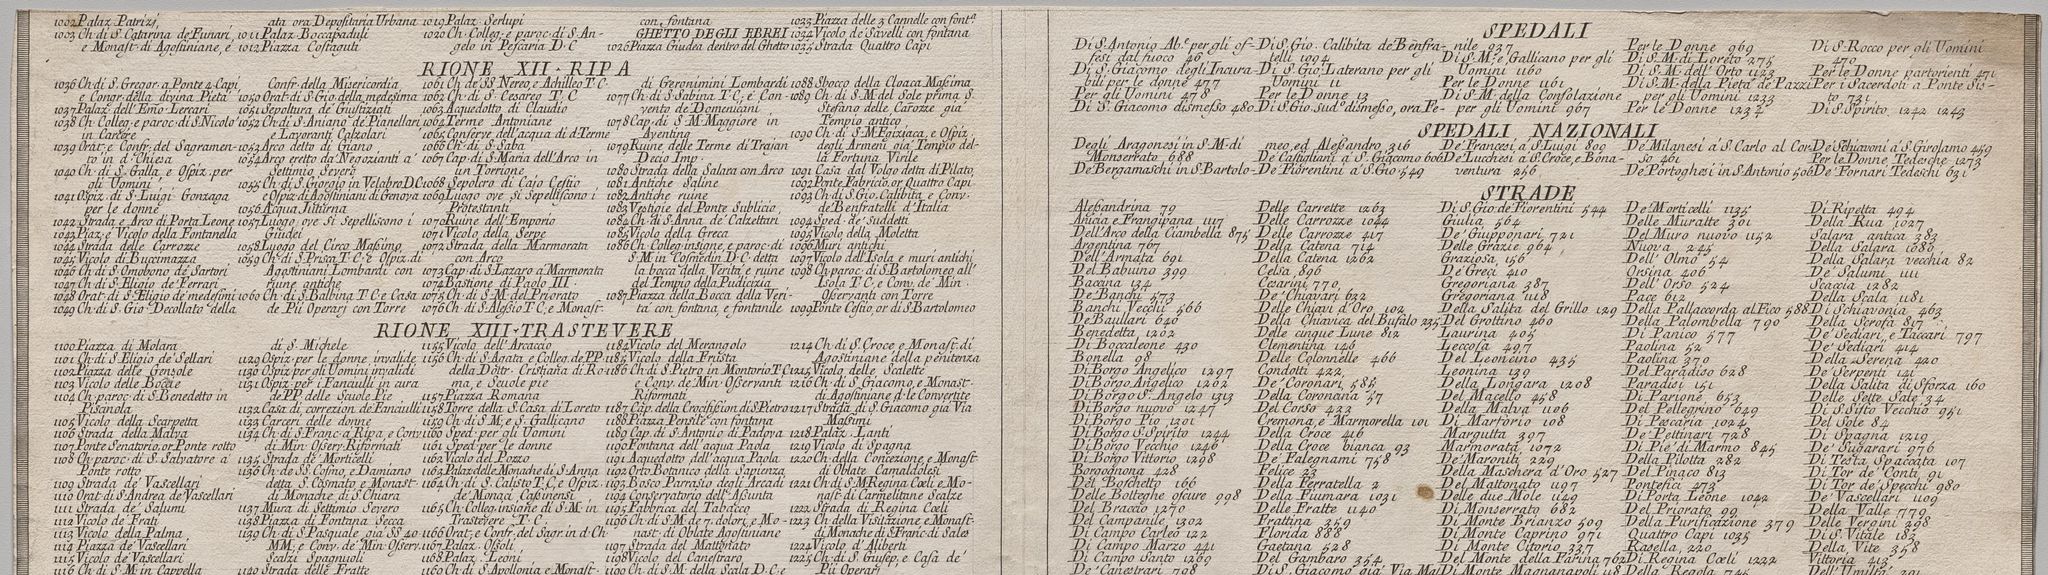 1002 Palaz. Patrizj,
1003 Ch. di S. Catarina de' Funari,
e Monast. di Agostiniane, e
ata ora Depositaria Urbana
1011 Palaz. Boccapaduli
1012 Piazza Costaguti
1019 Palaz. Serlupi
1020 Ch. Colleg. e paroc. di S. An-
gelo in Pescaria D. C
con fontana
GHETTO DEGLI EBREI
1026 Piazza Giudea dentro del Ghetto
1033 Piazza delle 3 Cannelle con font.ª
1034 Vicolo de' Savelli con fontana
1035 Strada Quattro Capi
RIONE XII. RIPA
1036 Ch. di S. Gregor. a Ponte 4 Capi,
e Congr. della divina Pietà
1037 Palaz. dell'Emo Ferrari
1038 Ch. Colleg. e paroc. di S. Nicolò
in Carcere
1039 Orat. e Confr. del Sagramen-
to in d. Chiesa
1040 Ch. di S. Galla, e Ospiz. per
gli Uomini
1041 Ospiz. di S. Luigi Gonzaga
per le donne
1042 Strada e Arco di Porta Leone
1043 Piaz. e Vicolo della Fontanella
1044 Strada delle Carrozze
1045 Vicolo di Bucimazza
1046 Ch. di S. Omobono de' Sartori
1047 Ch. di S. Eligio de' Ferrari
1048 Orat. di S. Eligio de' medesimi
1049 Ch. di S. Gio. Decollato della
Confr. della Misericordia
1050 Orat. di S. Gio. della medesima
1051 Sepoltura de' Giustiziati
1052 Ch. di S. Aniano de' Pianellari
e Lavoranti Calzolari
1053 Arco detto di Giano
1054 Arco eretto da' Negozianti a'
Settimio Severo
1055 Ch. di S. Giorgio in Velabro D. C
e Ospiz. di Agostiniani di Genova
1056 Acqua Juturna
1057 Luogo ove si Sepelliscono i
Giudei
1058 Luogo del Circo Massimo
1059 Ch. di S. Prisca T. C. e Ospiz. di
Agostiniani Lombardi con
ruine antiche
1060 Ch. di S. Balbina T. C. e Casa
de' Pii Operarj con Torre
1061 Ch. di SS. Nereo, e Achilleo T. C
1062 Ch. di S. Cesareo T. C
1063 Aquedotto di Claudio
1064 Terme Antoniane
1065 Conserve dell'acqua di d. Terme
1066 Ch. di S. Saba
1067 Cap. di S. Maria dell'Arco in
un Torrione
1068 Sepolcro di Cajo Cestio
1069 Luogo ove si Sepelliscono i
Protestanti
1070 Ruine dell'Emporio
1071 Vicolo della Serpe
1072 Strada della Marmorata
con Arco
1073 Cap. di S. Lazaro a' Marmorata
1074 Bastione di Paolo III.
1075 Ch. di S. M. del Priorato
1076 Ch. di S. Alessio T. C. e Monast.
di Geronimini Lombardi
1077 Ch. di S. Sabina T. C, e Con-
vento de' Domenicani
1078 Cap. di S. M. Maggiore in
Aventino
1079 Ruine delle Terme di Trajan
Decio Imp.
1080 Strada della Salara con Arco
1081 Antiche Saline
1082 Antiche ruine
1083 Vestigie del Ponte Sublicio
1084 Ch. di S. Anna de' Calzettari
1085 Vicolo della Greca
1086 Ch. Colleg. insigne, e paroc. di
S. M. in Cosmedin D. C. detta
la bocca della Verità e ruine
del Tempio della Pudicizia
1087 Piazza della Bocca della Veri-
tà con fontana, e fontanile
1088 Sbocco della Cloaca Massima
1089 Ch. di S. M. del Sole prima S.
Stefano delle Carozze già
Tempio antico
1090 Ch. di S. M. Egiziaca, e Ospiz.
degli Armeni già Tempio del-
la Fortuna Virile
1091 Casa dal Volgo detta di Pilato
1092 Ponte Fabricio, or Quattro Capi
1093 Ch. di S. Gio. Calibita e Conv.
de' Benfratelli d'Italia
1094 Sped. de' suddetti
1095 Vicolo della Moletta
1096 Muri antichi
1097 Vicolo dell'Isola e muri antichi
1098 Ch. paroc. di S. Bartolomeo all'
Isola T. C. e Conv. de' Min.
Osservanti con Torre
1099 Ponte Cestio, or di S. Bartolomeo
RIONE XIII. TRASTEVERE
1100 Piazza di Molara
1101 Ch. di S. Eligio de' Sellari
1102 Piazza delle Gensole
1103 Vicolo delle Boccie
1104 Ch. paroc. di S. Benedetto in
Piscinola
1105 Vicolo della Scarpetta
1106 Strada della Malva
1107 Ponte Senatorio, or Ponte rotto
1108 Ch. paroc. di S. Salvatore a'
Ponte rotto
1109 Strada de' Vascellari
1110 Orat. di S. Andrea de' Vascellari
1111 Strada de' Salumi
1112 Vicolo de' Frati
1113 Vicolo della Palma
1114 Piazza de' Vascellari
1115 Vicolo de' Vascellari
1116 Ch. di S. M. in Cappella
di S. Michele
1129 Ospiz. per le donne invalide
1130 Ospiz. per gli Uomini invalidi
1131 Ospiz. per i Fanciulli in cura
de' PP. delle Scuole Pie
1132 Casa di correzion de' Fanciulli
1133 Carceri delle donne
1134 Ch. di S. Franc. a Ripa, e Conv.
di Min. Osserv. Riformati
1135 Strada de' Morticelli
1136 Ch. de' SS. Cosimo, e Damiano
detta S. Cosmato e Monast.
di Monache di S. Chiara
1137 Mura di Settimio Severo
1138 Piazza di Fontana Secca
1139 Ch. di S. Pasquale, già SS. 40
MM., e Conv. de' Min. Osserv.
Scalzi Spagnuoli
1140 Strada delle Fratte
1155 Vicolo dell'Arcaccio
1156 Ch. di S. Agata e Colleg. de' PP.
della Dottr. Cristiana di Ro-
ma, e Scuole pie
1157 Piazza Romana
1158 Torre della S. Casa di Loreto
1159 Ch. di S. M. e S. Gallicano
1160 Sped. per gli Uomini
1161 Sped. per le donne
1162 Vicolo del Pozzo
1163 Palaz. delle Monache di S. Anna
1164 Ch. di S. Calisto T. C, e Ospiz.
de' Monaci Cassinensi
1165 Ch. Colleg. insigne di S. M. in
Trastevere T. C.
1166 Orat. e Confr. del Sagr. in d. Ch.
1167 Palaz. Ossoli
1168 Palaz. Leni
1169 Ch. di S. Apollonia e Monast.
1184 Vicolo del Merangolo
1185 Vicolo della Frusta
1186 Ch. di S. Pietro in Montorio T. C
e Conv. de' Min. Osservanti
Riformati
1187 Cap. della Crocifission di S. Pietro
1188 Piazza Pensile con fontana
1189 Cap. di S. Antonio di Padova
1190 Fontana dell'acqua Paola
1191 Aquedotto dell'acqua Paola
1192 Orto Botanico della Sapienza
1193 Bosco Parrasio degli Arcadi
1194 Conservatorio dell'Assunta
1195 Fabbrica del Tabacco
1196 Ch. di S. M. de' 7. dolori, e Mo-
nast. di Oblate Agostiniane
1197 Strada del Mattonato
1198 Vicolo del Canestraro
1199 Ch. di S. M. della Scala D. C. e
1214 Ch. di S. Croce e Monast. di
Agostiniane della penitenza
1215 Vicolo delle Scalette
1216 Ch. di S. Giacomo, e Monast.
di Agostiniane d. le Convertite
1217 Strada di S. Giacomo già Via
Massimi
1218 Palaz. Lanti
1219 Vicolo di Spagna
1220 Ch. della Concezione e Monast.
di Oblate Camaldolesi
1221 Ch. di S. M. Regina Cœli e Mo-
nast. di Carmelitane Scalze
1222 Strada di Regina Cœli
1223 Ch. della Visitazione e Monast.
di Monache di S. Franc. di Sales
1224 Vicolo d'Aliberti
1225 Ch. di S. Giusep. e Casa de'
Pii Operarj
SPEDALI
Di S. Antonio Ab.e per gli of-
fesi dal fuoco 46
Di S. Giacomo degli Incura-
bili per le donne 477
Per gli Uomini 478
Di S. Giacomo dismesso 480
Di S. Gio. Calibita de' Benfra-
telli 1094
Di S. Gio. Laterano per gli
Uomini 11
Per le Donne 13
Di S. Gio. Sud.º dismesso, ora Fe-
nile 937
Di S. M. e S. Gallicano per gli
Uomini 1160
Per le Donne 1161
Di S. M. della Consolazione
per gli Uomini 967
Per le Donne 969
Di S. M. di Loreto 275
Di S. M. dell'Orto 1123
Di S. M. della Pietà de' Pazzi
per gli Uomini 1233
Per le Donne 1234
Di S. Rocco per gli Uomini
470
Per le Donne partorienti 471
Per i Sacerdoti a Ponte Sis-
to 731
Di S. Spirito 1242 1243
SPEDALI NAZIONALI
Degli Aragonesi in S. M. di
Monserrato 688
De' Bergamaschi in S. Bartolo-
meo, ed Alessandro 316
De' Castigliani a S. Giacomo 606
De' Fiorentini a S. Gio. 549
De' Francesi a S. Luigi 809
De' Lucchesi a S. Croce, e Bona-
ventura 256
De' Milanesi a S. Carlo al Cor-
so 461
De' Portoghesi in S. Antonio 506
De' Schiavoni a S. Girolamo 459
Per le Donne Tedesche 1273
De' Fornari Tedeschi 631
STRADE
Alessandrina 79
Anicia e Frangipana 1117
Dell'Arco della Ciambella 875
Argentina 767
Dell'Armata 691
Del Babuino 399
Baccina 134
De' Banchi 573
Banchi Vecchi 566
De' Baullari 640
Benedetta 1202
Di Boccaleone 430
Bonella 98
Di Borgo Angelico 1297
Di Borgo Angelico 1262
Di Borgo S. Angelo 1313
Di Borgo nuovo 1247
Di Borgo Pio 1201
Di Borgo S. Spirito 1244
Di Borgo Vecchio 1246
Di Borgo Vittorio 1298
Borgognona 428
Del Boschetto 166
Delle Botteghe oscure 998
Del Braccio 1270
Del Campanile 1302
Di Campo Carleo 122
Di Campo Marzo 441
Di Campo Santo 1269
De' Canestrari 798
Delle Carrette 1263
Delle Carrozze 1044
Delle Carrozze 417
Della Catena 714
Della Catena 1262
Celsa, 896
Cesarini 770,
De' Chiavari 632
Delle Chiavi d'Oro 102
Della Chiavica del Bufalo 235
Delle cinque Lune 812
Clementina 146
Delle Colonnelle 466
Condotti 422,
De' Coronari, 585
Della Coroncina 57
Del Corso 433
Cremona, e Marmorella 101
Della Croce 416
Della Croce bianca 93
De' Falegnami 758
Felice 23
Della Ferratella 2
Della Fiumara 1031
Delle Fratte 1140
Frattina 359
Florida 888
Gaetana 528
Del Gambaro 354
Di S. Giacomo già Via Mas
Di S. Gio. de' Fiorentini 544
Giulia 564
De' Giupponari 721
Delle Grazie 964
Graziosa, 156
De' Greci 410
Gregoriana 387
Gregoriana 1118
Della Salita del Grillo 129
Del Grottino 460
Laurina 405
Leccosa 497
Del Leoncino 435
Leonina 139
Della Longara 1208
Del Macello 458
Della Malva 1106
Di Marforio 108
Margutta 397
Marmorata 1072
De' Maroniti 229
Della Maschera d'Oro 527
Del Mattonato 1197
Delle due Mole 1149
Di Monserrato 682
Di Monte Brianzo 509
Di Monte Caprino 971
Di Monte Citorio 337
Di Monte della Farina 762
Di Monte Magnanapoli 118
De' Morticelli 1135
Delle Muratte 301
Del Muro nuovo 1152
Nuova 245
Dell'Olmo 54
Orsina 406
Dell'Orso 524
Pace 612
Della Pallaccorda al Fico 588
Della Palombella 790
Di Panico 577
Paolina 52
Paolina 370
Del Paradiso 628
Paradisi 151
Di Parione 653
Del Pellegrino 649
Di Pescaria 1024
De' Pettinari 728
Di Piè di Marmo 845
Della Pilotta 282
Del Pinaco 813
Pontefici 473
Di Porta Leone 1042
Del Priorato 99
Della Purificazione 379
Quattro Capi 1035
Rasella, 220
Di Regina Cœli 1222
Della Regola 745
Di Ripetta 494
Della Rua 1027
Salara antica 283
Della Salara 1080
Della Salara vecchia 82
De' Salumi 1111
Scaccia 1282
Della Scala 1181
Di Schiavonia 463
Della Scrofa 817
De' Sediari, e Taccari 797
De' Sediari 414
Della Serena 420
De' Serpenti 141
Della Salita di Sforza 160
Delle Sette Sale 34
Di S. Sisto Vecchio 951
Del Sole 84
Di Spagna 1219
De' Sugarari 976
Di Testa Spaccata 107
Di Tor de' Conti 91
Di Tor de' Specchi 980
De' Vascellari 1109
Della Valle 779
Delle Vergini 298
Di S. Vitale 183
Della Vite 358
Vittoria 413
Dell'Umiltà 291